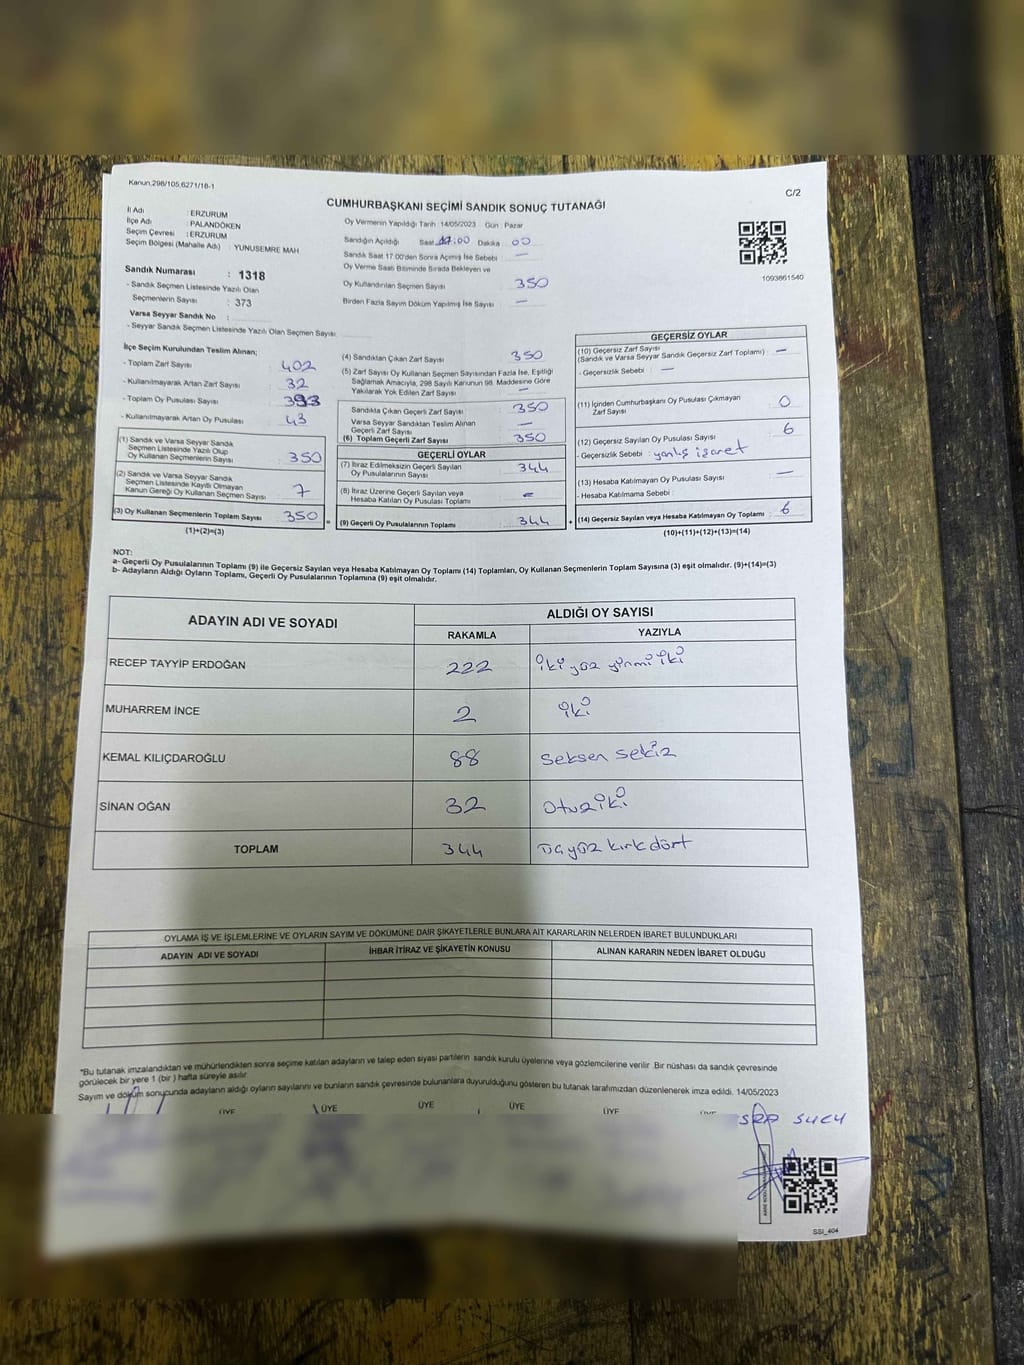 Kanun,298/105,6271/16-1
C/2
CUMHURBAŞKANI SEÇİMİ SANDIK SONUÇ TUTANAĞI
İl Adı : ERZURUM
İlçe Adı : PALANDÖKEN
Seçim Çevresi : ERZURUM
Seçim Bölgesi (Mahalle Adı) : YUNUSEMRE MAH
Sandık Numarası : 1318
- Sandık Seçmen Listesinde Yazılı Olan
Seçmenlerin Sayısı : 373
Varsa Seyyar Sandık No :
- Seyyar Sandık Seçmen Listesinde Yazılı Olan Seçmen Sayısı:
Oy Vermenin Yapıldığı Tarih :14/05/2023 Gün : Pazar
Sandığın Açıldığı Saat 17:00 Dakika 00
Sandık Saat 17.00'den Sonra Açılmış İse Sebebi —
Oy Verme Saati Bitiminde Sırada Bekleyen ve
Oy Kullandırılan Seçmen Sayısı 350
Birden Fazla Sayım Döküm Yapılmış İse Sayısı —
1093861540
İlçe Seçim Kurulundan Teslim Alınan;
- Toplam Zarf Sayısı 402
- Kullanılmayarak Artan Zarf Sayısı 32
- Toplam Oy Pusulası Sayısı 393
- Kullanılmayarak Artan Oy Pusulası 43
(1) Sandık ve Varsa Seyyar Sandık
Seçmen Listesinde Yazılı Olup
Oy Kullanan Seçmenlerin Sayısı 350
(2) Sandık ve Varsa Seyyar Sandık
Seçmen Listesinde Kayıtlı Olmayan
Kanun Gereği Oy Kullanan Seçmen Sayısı 7
(3) Oy Kullanan Seçmenlerin Toplam Sayısı 350
(1)+(2)=(3)
(4) Sandıktan Çıkan Zarf Sayısı 350
(5) Zarf Sayısı Oy Kullanan Seçmen Sayısından Fazla İse, Eşitliği
Sağlamak Amacıyla, 298 Sayılı Kanunun 98. Maddesine Göre
Yakılarak Yok Edilen Zarf Sayısı —
Sandıkta Çıkan Geçerli Zarf Sayısı 350
Varsa Seyyar Sandıktan Teslim Alınan
Geçerli Zarf Sayısı —
(6) Toplam Geçerli Zarf Sayısı 350
GEÇERLİ OYLAR
(7) İtiraz Edilmeksizin Geçerli Sayılan
Oy Pusulalarının Sayısı 344
(8) İtiraz Üzerine Geçerli Sayılan veya
Hesaba Katılan Oy Pusulası Toplamı —
= (9) Geçerli Oy Pusulalarının Toplamı 344 +
GEÇERSİZ OYLAR
(10) Geçersiz Zarf Sayısı
(Sandık ve Varsa Seyyar Sandık Geçersiz Zarf Toplamı) : —
- Geçersizlik Sebebi : —
(11) İçinden Cumhurbaşkanı Oy Pusulası Çıkmayan
Zarf Sayısı 0
(12) Geçersiz Sayılan Oy Pusulası Sayısı 6
- Geçersizlik Sebebi : yanlış işaret
(13) Hesaba Katılmayan Oy Pusulası Sayısı —
- Hesaba Katılmama Sebebi :
(14) Geçersiz Sayılan veya Hesaba Katılmayan Oy Toplamı : 6
(10)+(11)+(12)+(13)=(14)
NOT:
a- Geçerli Oy Pusulalarının Toplamı (9) ile Geçersiz Sayılan veya Hesaba Katılmayan Oy Toplamı (14) Toplamları, Oy Kullanan Seçmenlerin Toplam Sayısına (3) eşit olmalıdır. (9)+(14)=(3)
b- Adayların Aldığı Oyların Toplamı, Geçerli Oy Pusulalarının Toplamına (9) eşit olmalıdır.
ADAYIN ADI VE SOYADI
ALDIĞI OY SAYISI
RAKAMLA YAZIYLA
RECEP TAYYİP ERDOĞAN 222 iki yüz yirmi iki
MUHARREM İNCE 2 iki
KEMAL KILIÇDAROĞLU 88 Seksen sekiz
SİNAN OĞAN 32 otuz iki
TOPLAM 344 üçyüz kırk dört
OYLAMA İŞ VE İŞLEMLERİNE VE OYLARIN SAYIM VE DÖKÜMÜNE DAİR ŞİKAYETLERLE BUNLARA AİT KARARLARIN NELERDEN İBARET BULUNDUKLARI
ADAYIN ADI VE SOYADI İHBAR İTİRAZ VE ŞİKAYETİN KONUSU ALINAN KARARIN NEDEN İBARET OLDUĞU
*Bu tutanak imzalandıktan ve mühürlendikten sonra seçime katılan adayların ve talep eden siyasi partilerin sandık kurulu üyelerine veya gözlemcilerine verilir .Bir nüshası da sandık çevresinde
görülecek bir yere 1 (bir ) hafta süreyle asılır.
Sayım ve döküm sonucunda adayların aldığı oyların sayılarını ve bunların sandık çevresinde bulunanlara duyurulduğunu gösteren bu tutanak tarafımızdan düzenlenerek imza edildi. 14/05/2023
ÜYE ÜYE ÜYE ÜYE ÜYE ÜYE
SSİ_404